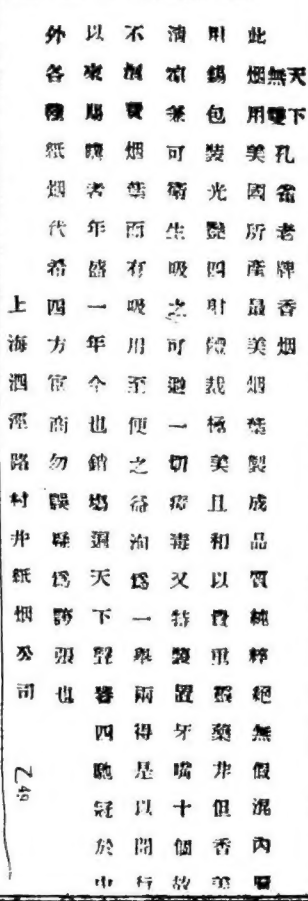 天下無雙孔雀老牌香烟
此烟用美國所產最美烟葉製成品質純粹絕無假混內層
用錫包裝光艷四射體裁極美且和以貴重靈藥非但香美
清涼兼可衛生吸之可避一切疫毒又特製置牙嘴十個故
不損費烟葉而有吸用至便之益洵爲一舉兩得是以開行
以來賜購者年盛一年今也銷場洞天下聲譽四馳冠於中
外各種紙烟代希四方官商勿誤疑爲誇張也
上海泗涇路村井紙烟公司
乙49